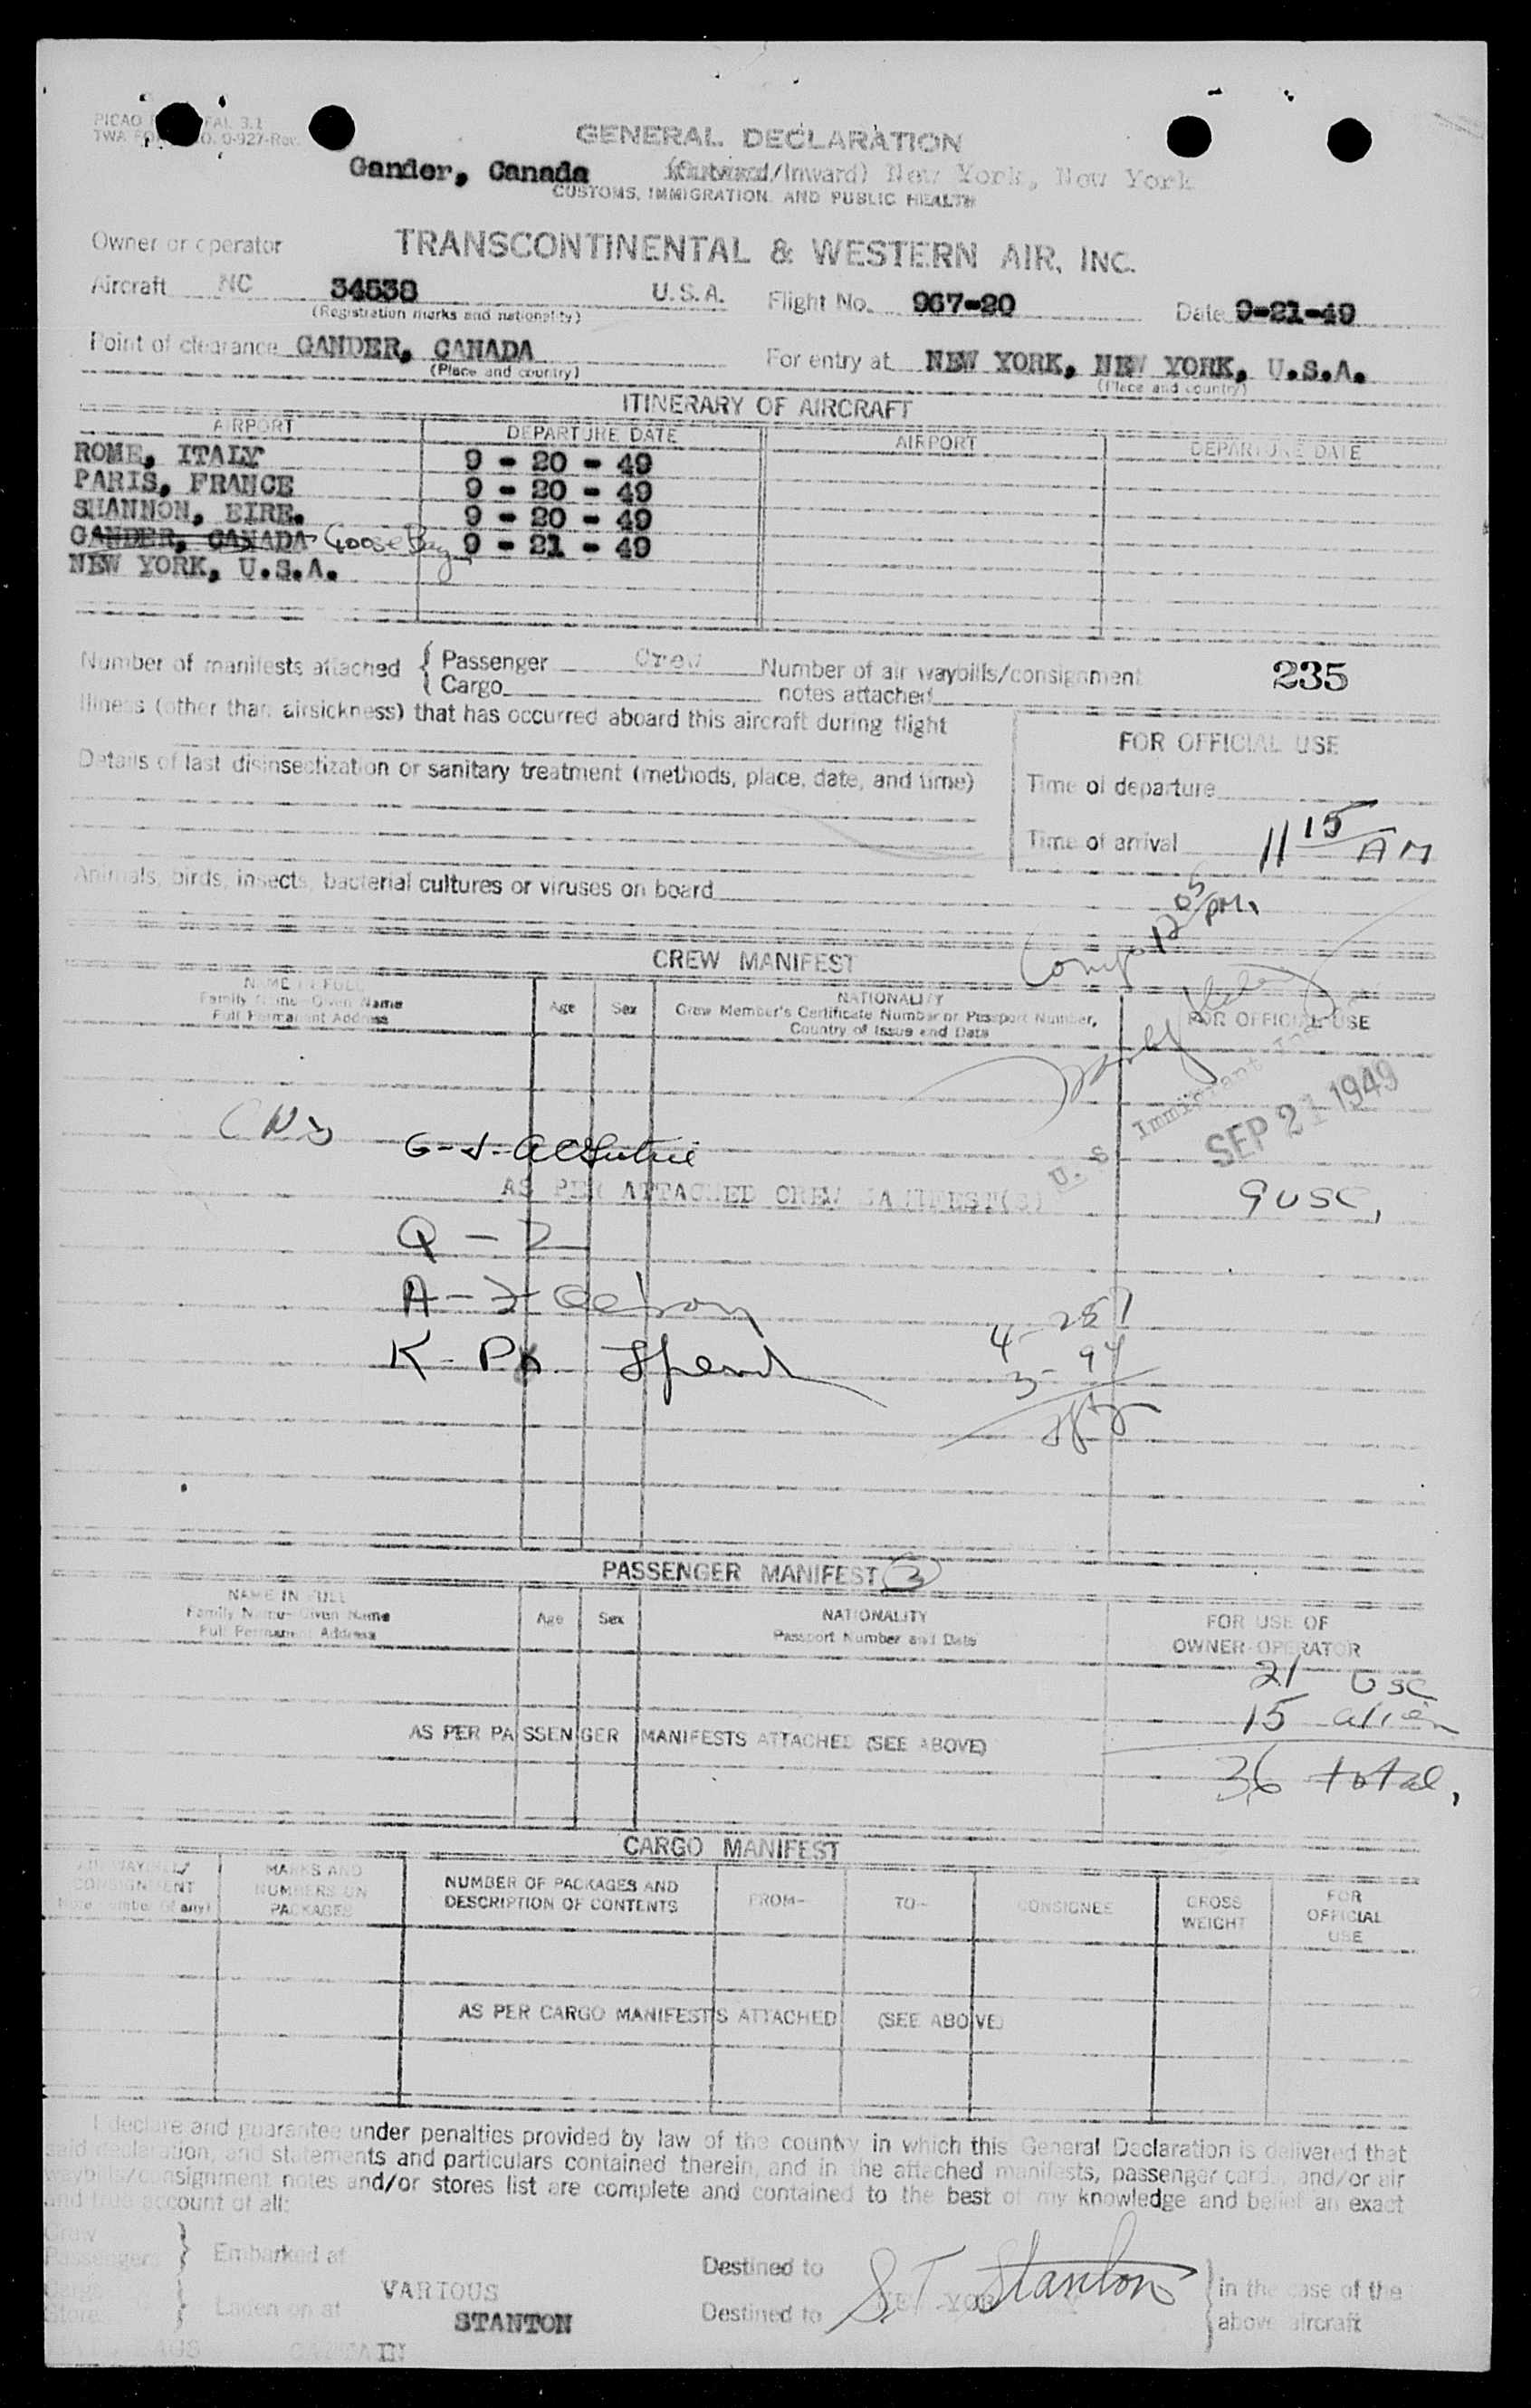 PICAO FAL 3.1
TWA FO NO. 0-927-Rev.
GENERAL DECLARATION
Gander, Canada (Outward/Inward) New York, New York
CUSTOMS, IMMIGRATION AND PUBLIC HEALTH
Owner or operator TRANSCONTINENTAL & WESTERN AIR, INC.
Aircraft NC 34538 U.S.A. Flight No. 967-20 Date 9-21-49
(Registration marks and nationality)
Point of clearance GANDER, CANADA For entry at NEW YORK, NEW YORK, U.S.A.
(Place and country) (Place and country)
ITINERARY OF AIRCRAFT
AIRPORT DEPARTURE DATE AIRPORT DEPARTURE DATE
ROME, ITALY 9 - 20 - 49
PARIS, FRANCE 9 - 20 - 49
SHANNON, EIRE. 9 - 20 - 49
GANDER, CANADA Goose Bay 9 - 21 - 49
NEW YORK, U.S.A.
Number of manifests attached { Passenger Crew Number of air waybills/consignment 235
Cargo notes attached
Illness (other than airsickness) that has occurred aboard this aircraft during flight
FOR OFFICIAL USE
Details of last disinsectization or sanitary treatment (methods, place, date, and time)
Time of departure
Time of arrival 11 15 AM
Animals, birds, insects, bacterial cultures or viruses on board
12 05 PM.
CREW MANIFEST
NAME IN FULL
Family Name-Given Name
Full Permanent Address
Age Sex
NATIONALITY
Crew Member's Certificate Number or Passport Number,
Country of Issue and Date
FOR OFFICIAL USE
U. S. Immigrant
SEP 21 1949
AS PER ATTACHED CREW MANIFEST(S)
9 USC,
Q - 2
K - PA
4 - 257
3 - 94
PASSENGER MANIFEST 3
NAME IN FULL
Family Name-Given Name
Full Permanent Address
Age Sex
NATIONALITY
Passport Number and Date
FOR USE OF
OWNER-OPERATOR
21 USC
15 alien
AS PER PASSENGER MANIFESTS ATTACHED (SEE ABOVE)
36 total,
CARGO MANIFEST
AIR WAYBILL/
CONSIGNMENT
Note Number (if any)
MARKS AND
NUMBERS ON
PACKAGES
NUMBER OF PACKAGES AND
DESCRIPTION OF CONTENTS
FROM- TO- CONSIGNEE
GROSS
WEIGHT
FOR
OFFICIAL
USE
AS PER CARGO MANIFESTS ATTACHED (SEE ABOVE)
I declare and guarantee under penalties provided by law of the country in which this General Declaration is delivered that
said declaration, and statements and particulars contained therein, and in the attached manifests, passenger cards, and/or air
waybills/consignment notes and/or stores list are complete and contained to the best of my knowledge and belief an exact
and true account of all:
Crew
Passengers } Embarked at Destined to
VARIOUS
Cargo
Stores } Laden on at Destined to NEW YORK
S.T. Stanton
} in the case of the
above aircraft
STANTON
CAPTAIN